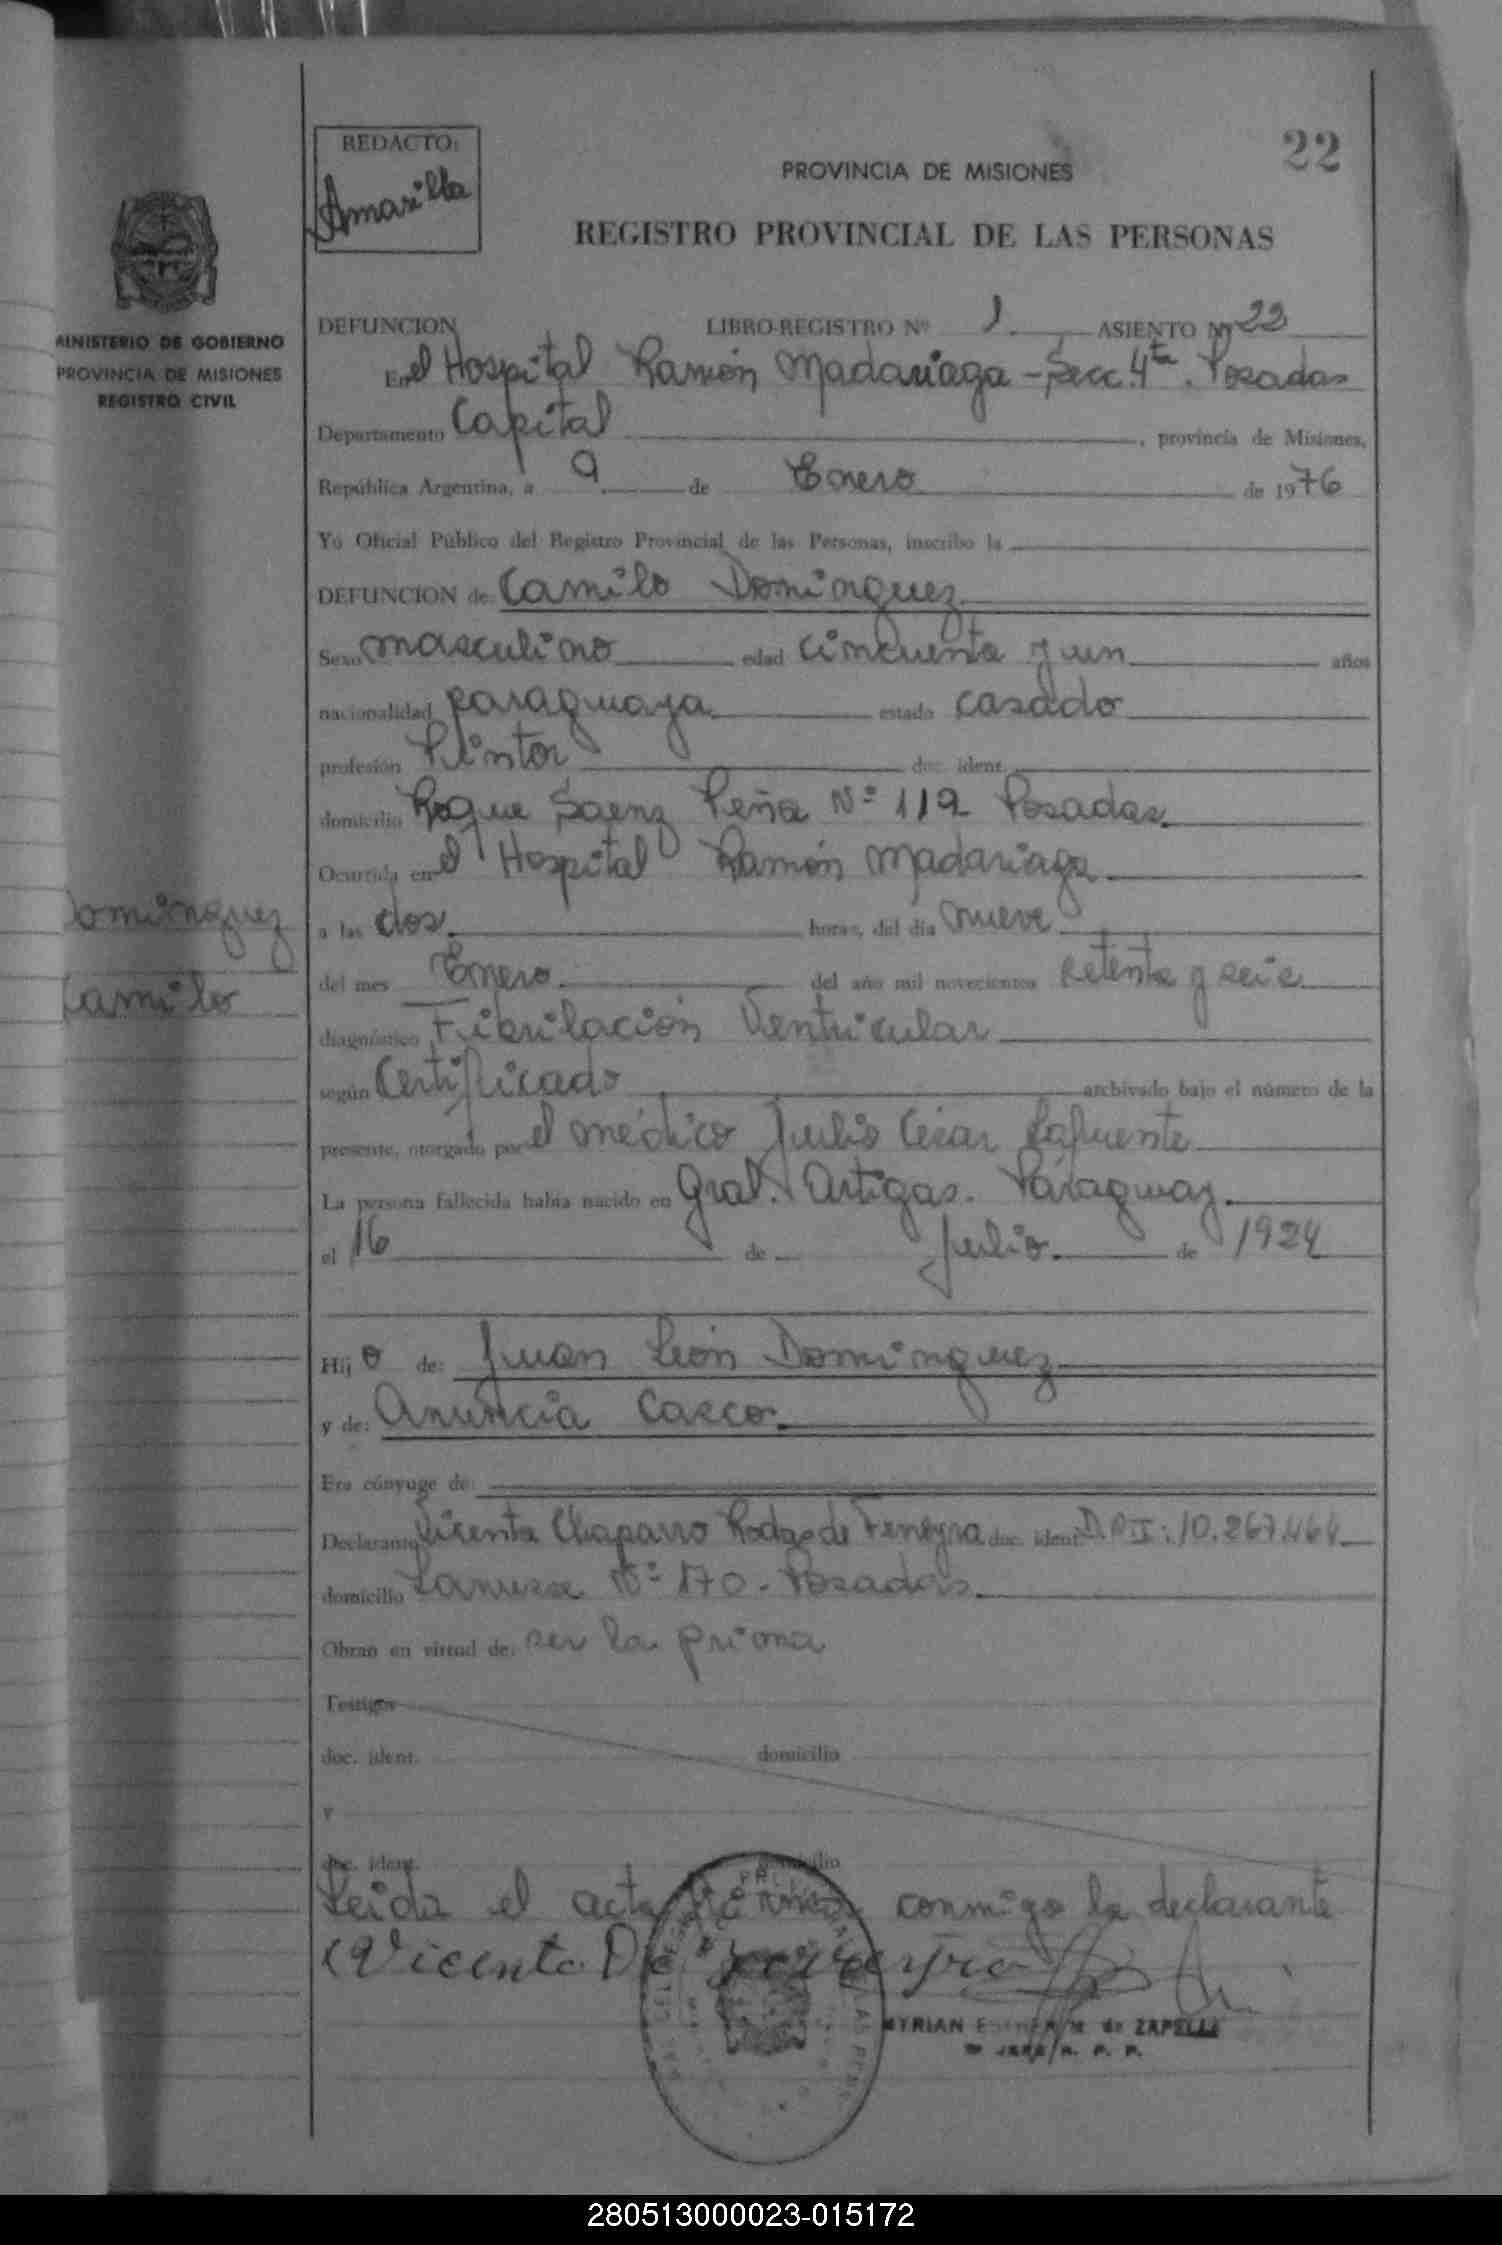 22
REDACTO:
Amarilla
PROVINCIA DE MISIONES
REGISTRO PROVINCIAL DE LAS PERSONAS
MINISTERIO DE GOBIERNO
PROVINCIA DE MISIONES
REGISTRO CIVIL
DEFUNCION LIBRO-REGISTRO Nº 1 ASIENTO Nº 22
En el Hospital Ramón Madariaga - Secc. 4ta. Posadas
Departamento Capital, provincia de Misiones,
República Argentina, a 9 de Enero de 1976
Yo Oficial Público del Registro Provincial de las Personas, inscribo la
DEFUNCION de Camilo Dominguez
Sexo masculino edad cincuenta y un años
nacionalidad paraguaya estado casado
profesión Pintor doc. ident.
domicilio Roque Saenz Peña Nº 112 Posadas
Ocurrida en el Hospital Ramón Madariaga
Dominguez
a las dos horas, del día nueve
del mes Enero del año mil novecientos setenta y seis
Camilo
diagnóstico Fibrilación Ventricular
según Certificado archivado bajo el número de la
presente, otorgado por el médico Julio César Lafuente
La persona fallecida había nacido en Gral. Artigas. Paraguay
el 16 de Julio de 1924
Hij o de: Juan León Dominguez
y de: Anuncia Casco
Era cónyuge de:
Declarante Vicenta Chaparro Rodas de Ferreyra doc. ident. D.N.I: 10.267.464
domicilio Lanusse Nº 170. Posadas
Obran en virtud de: ser la prima
Testigos
doc. ident. domicilio
y
doc. ident. domicilio
Leida el acta firma conmigo la declarante
Vicenta De Ferreyra
MYRIAN ESTHER M. de ZAPELLI
JEFE R. P. P.
280513000023-015172